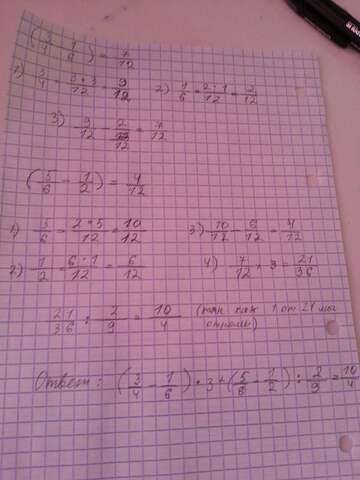 (3/4 - 1/6) = 7/12
1) 3/4 = 3*3/12 = 9/12 2) 1/6 = 2*1/12 = 2/12
3) 9/12 - 2/12 = 7/12
(5/6 - 1/2) = 4/12
1) 5/6 = 2*5/12 = 10/12 3) 10/12 - 6/12 = 4/12
2) 1/2 = 6*1/12 = 6/12 4) 7/12 * 3 = 21/36
21/36 : 2/9 = 10/4 (так как 1 от 21 мы
отняли)
Ответ: (3/4 - 1/6) * 3 + (5/6 - 1/2) : 2/9 = 10/4